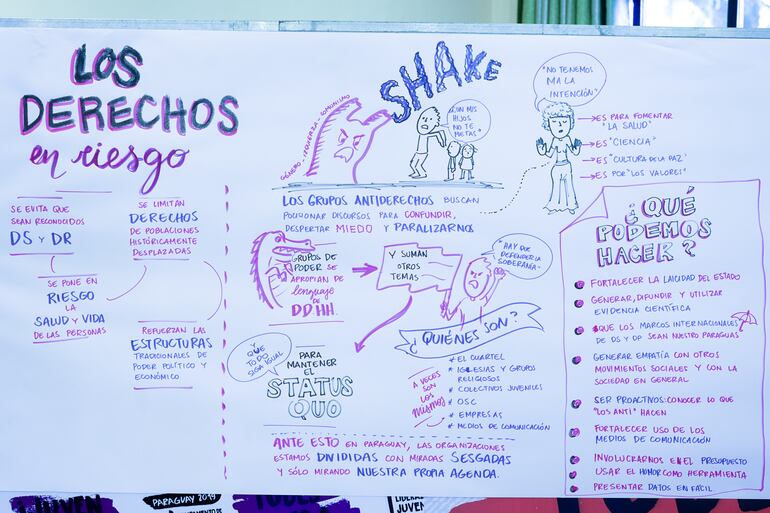 LOS
DERECHOS
en riesgo
SE EVITA QUE
SEAN RECONOCIDOS
DS Y DR
SE LIMITÁN
DERECHOS
DE POBLACIONES
HISTÓRICAMENTE
DESPLAZADAS
SE PONE EN
RIESGO
LA
SALUD Y VIDA
DE LAS PERSONAS
REFUERZAN LAS
ESTRUCTURAS
TRADICIONALES DE
PODER POLÍTICO Y
ECONÓMICO
SHAKE
GÉNERO - VERGÜENZA - COMUNISMO
"CON MIS
HIJOS
NO TE
METAS"
"NO TENEMOS
MA LA
INTENCIÓN"
ES PARA FOMENTAR
"LA SALUD"
ES "CIENCIA"
ES "CULTURA DE LA PAZ"
ES POR "LOS VALORES"
LOS GRUPOS ANTIDERECHOS BUSCAN
POSICIONAR DISCURSOS PARA CONFUNDIR,
DESPERTAR MIEDO Y PARALIZARNOS
GRUPOS DE
PODER SE
APROPIAN DE
lenguaje
DE
DDHH.
Y SUMAN
OTROS
TEMAS
"HAY QUE
DEFENDER LA
SOBERANÍA"
¿QUIÉNES SON?
Y QUE
TODO
SIGA IGUAL
PARA
MANTENER
EL
STATUS
QUO
A VECES
SON
LOS
MISMOS
* EL CUARTEL
* IGLESIAS Y GRUPOS
RELIGIOSOS
* COLECTIVOS JUVENILES
* OSC
* EMPRESAS
* MEDIOS DE COMUNICACIÓN
ANTE ESTO EN PARAGUAY, LAS ORGANIZACIONES
ESTAMOS DIVIDIDAS CON MIRADAS SESGADAS
Y SÓLO MIRANDO NUESTRA PROPIA AGENDA.
¿QUÉ
PODEMOS
HACER?
FORTALECER LA LAICIDAD DEL ESTADO
GENERAR, DIFUNDIR Y UTILIZAR
EVIDENCIA CIENTÍFICA
QUE LOS MARCOS INTERNACIONALES
DE DS Y DP SEAN NUESTRO PARAGUAS
GENERAR EMPATÍA CON OTROS
MOVIMIENTOS SOCIALES Y CON LA
SOCIEDAD EN GENERAL
SER PROACTIVOS: CONOCER LO QUE
"LOS ANTI" HACEN
FORTALECER USO DE LOS
MEDIOS DE COMUNICACIÓN
INVOLUCRARNOS EN EL PRESUPUESTO
USAR EL HUMOR COMO HERRAMIENTA
PRESENTAR DATOS EN FÁCIL
JUVEN
PARAGUAY 2019